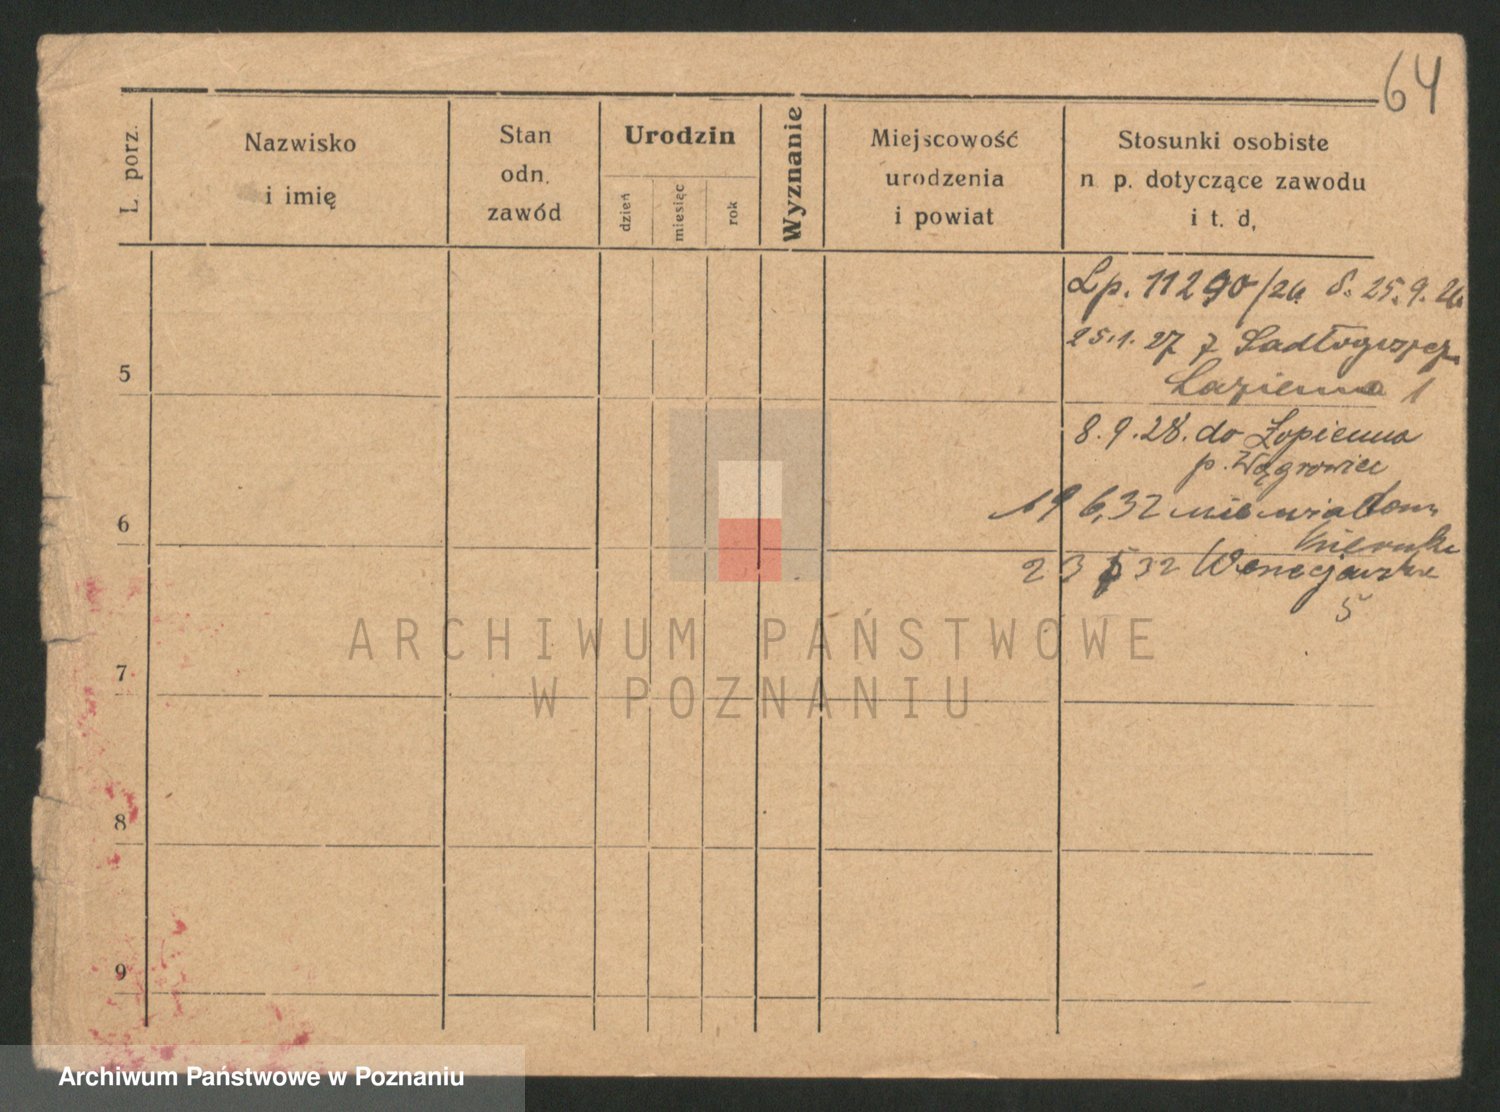 64
L. porz.
Nazwisko
i imię
Stan
odn.
zawód
Urodzin
dzień
miesiąc
rok
Wyznanie
Miejscowość
urodzenia
i powiat
Stosunki osobiste
n p. dotyczące zawodu
i t. d,
Lp. 11290/26 d. 25.9.26
25.1.27 z
Łazienna 1
8.9.28. do Łopienna
p. Wągrowiec
19 6,32 niewiadom
kierunku
23 5 32 Wenecjańska
5
5
6
7
8
9
ARCHIWUM PAŃSTWOWE
W POZNANIU
Archiwum Państwowe w Poznaniu